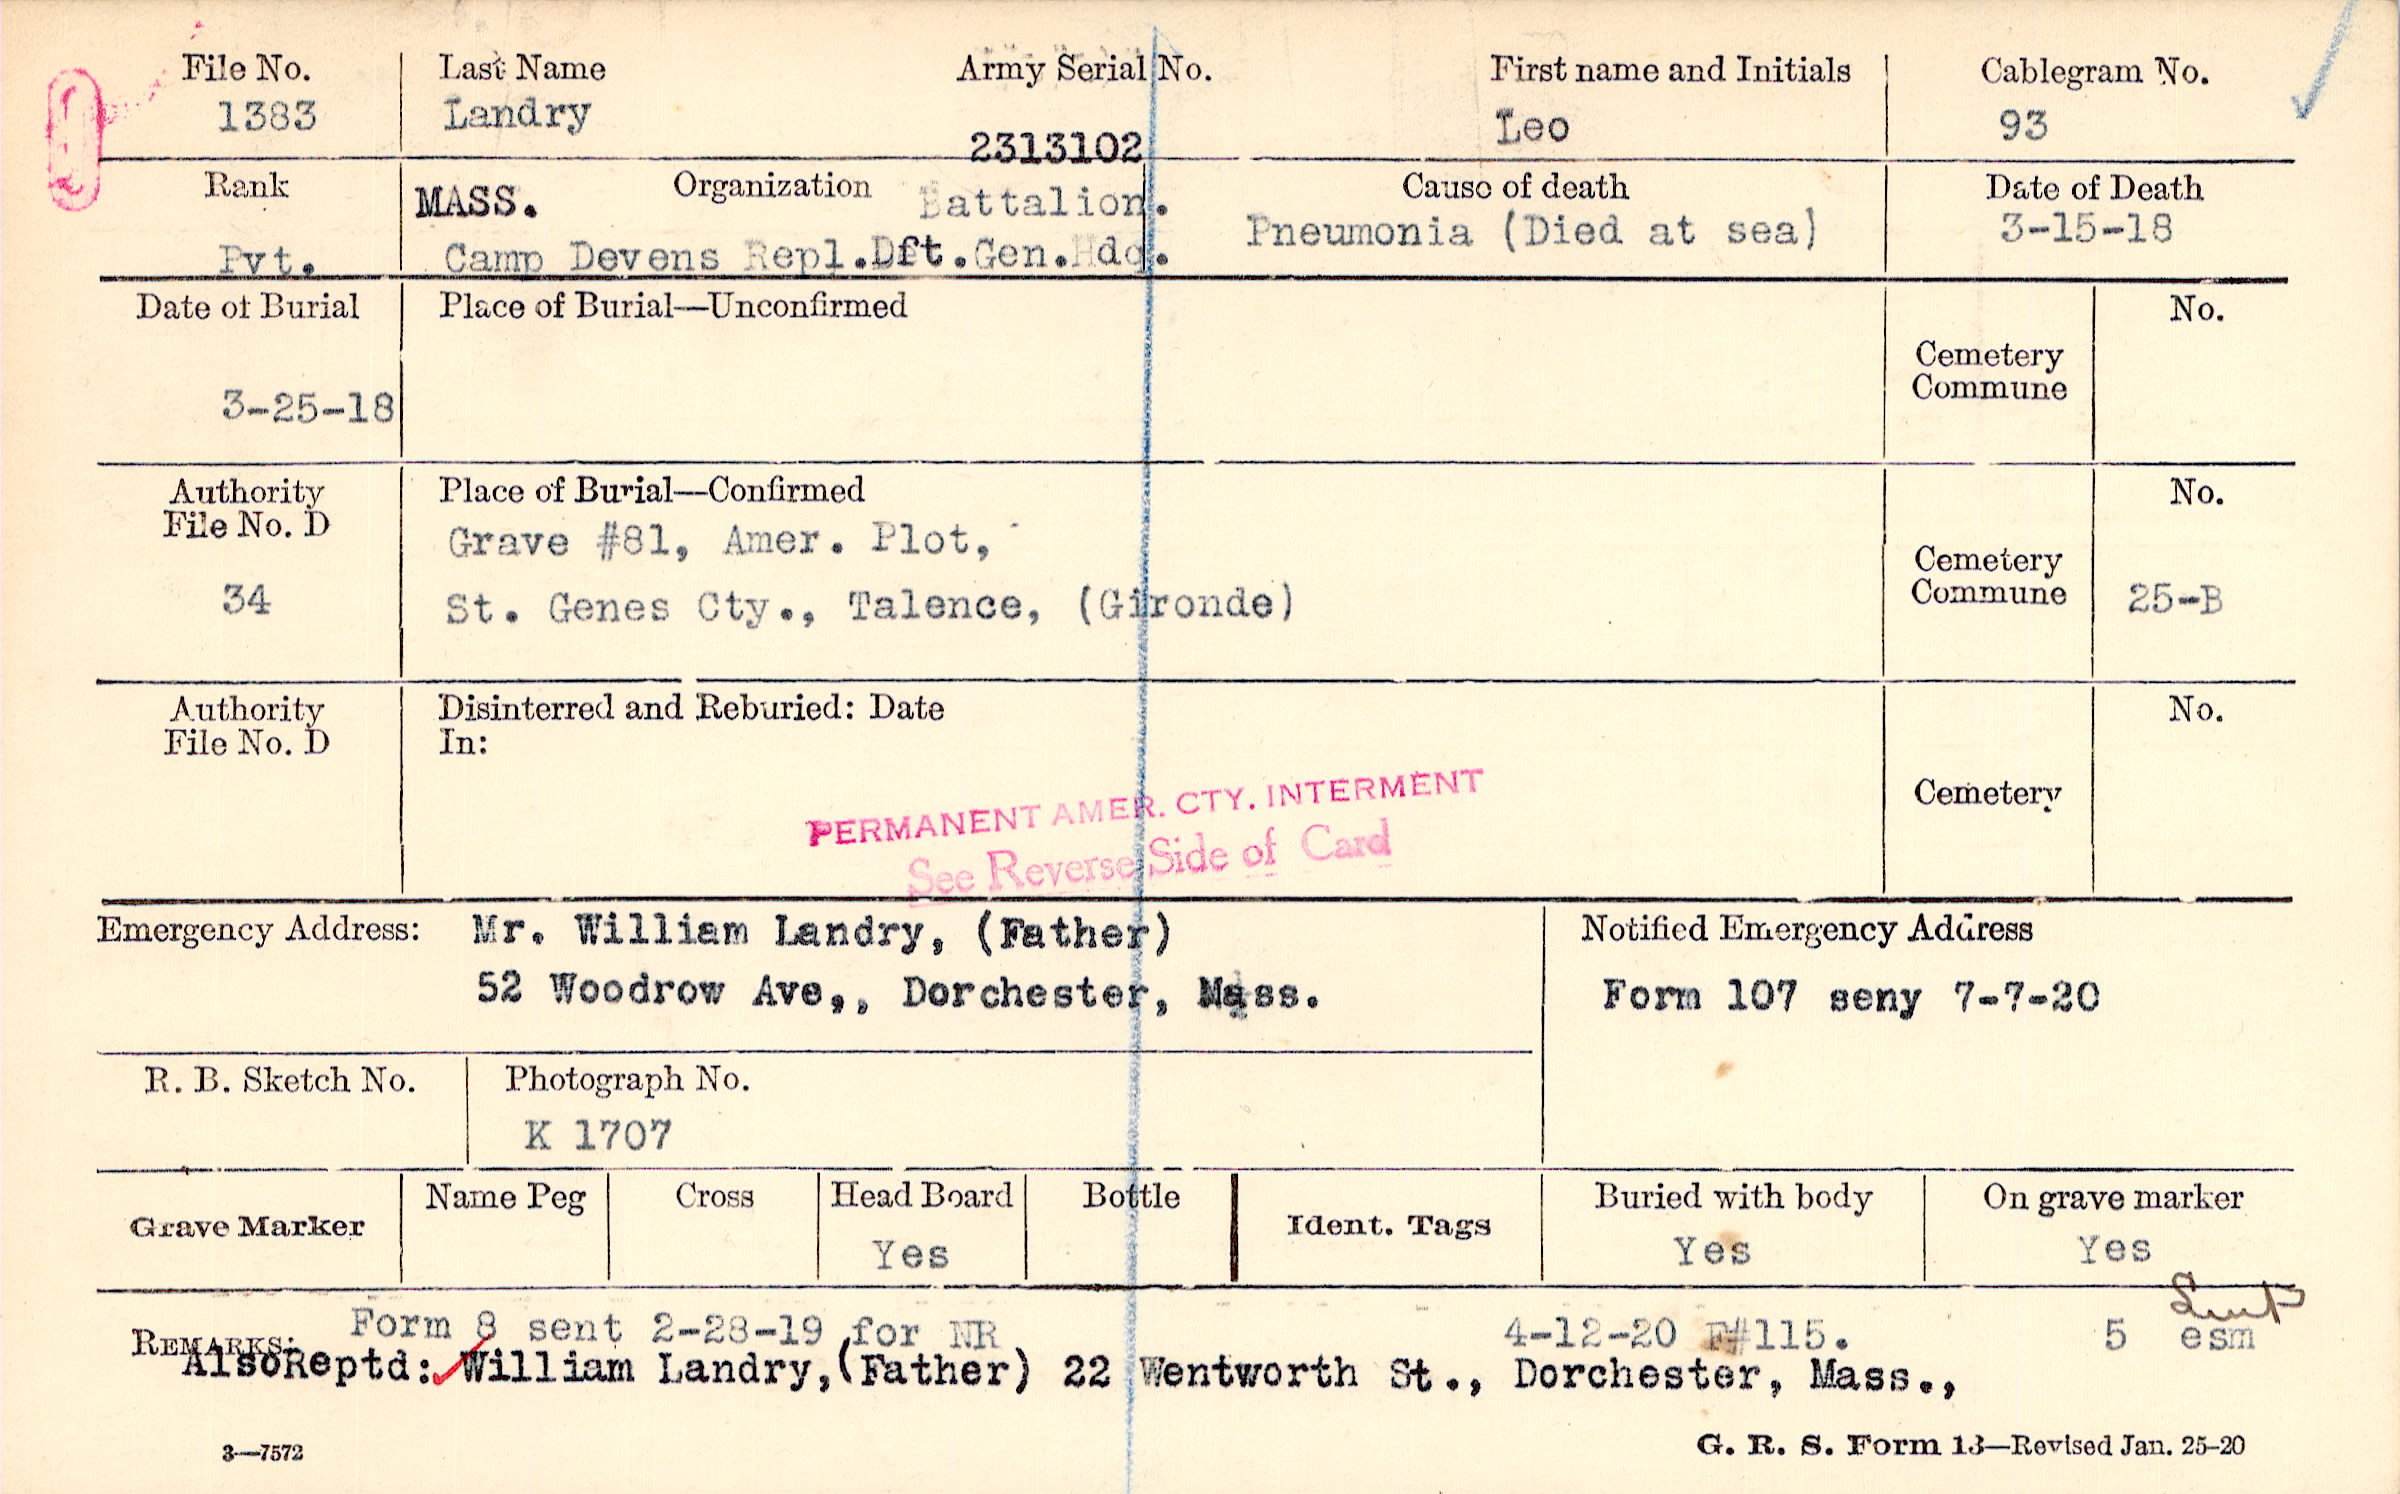 File No. Last Name Army Serial No. First name and Initials Cablegram No.
1383 Landry 2313102 Leo 93
Rank Organization Cause of death Date of Death
MASS. Battalion. Pneumonia (Died at sea) 3-15-18
Pvt. Camp Devens Repl.Dft.Gen.Hdq.
Date of Burial Place of Burial—Unconfirmed No.
Cemetery
Commune
3-25-18
Authority Place of Burial—Confirmed No.
File No. D
Grave #81, Amer. Plot,
Cemetery
34 St. Genes Cty., Talence, (Gironde) Commune 25-B
Authority Disinterred and Reburied: Date No.
File No. D In:
Cemetery
PERMANENT AMER. CTY. INTERMENT
See Reverse Side of Card
Emergency Address: Mr. William Landry, (Father) Notified Emergency Address
52 Woodrow Ave,, Dorchester, Mass. Form 107 seny 7-7-20
R. B. Sketch No. Photograph No.
K 1707
Grave Marker Name Peg Cross Head Board Bottle Ident. Tags Buried with body On grave marker
Yes Yes Yes
REMARKS: Form 8 sent 2-28-19 for NR 4-12-20 F#115. 5 esm
AlsoReptd: William Landry,(Father) 22 Wentworth St., Dorchester, Mass.,
3—7572 G. R. S. Form 13—Revised Jan. 25-20